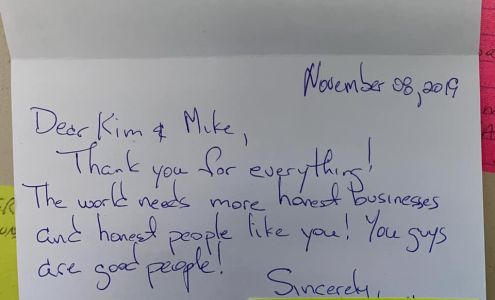 November 08, 2019
Dear Kim & Mike,
Thank you for everything!
The world needs more honest businesses
and honest people like you! You guys
are good people!
Sincerely,